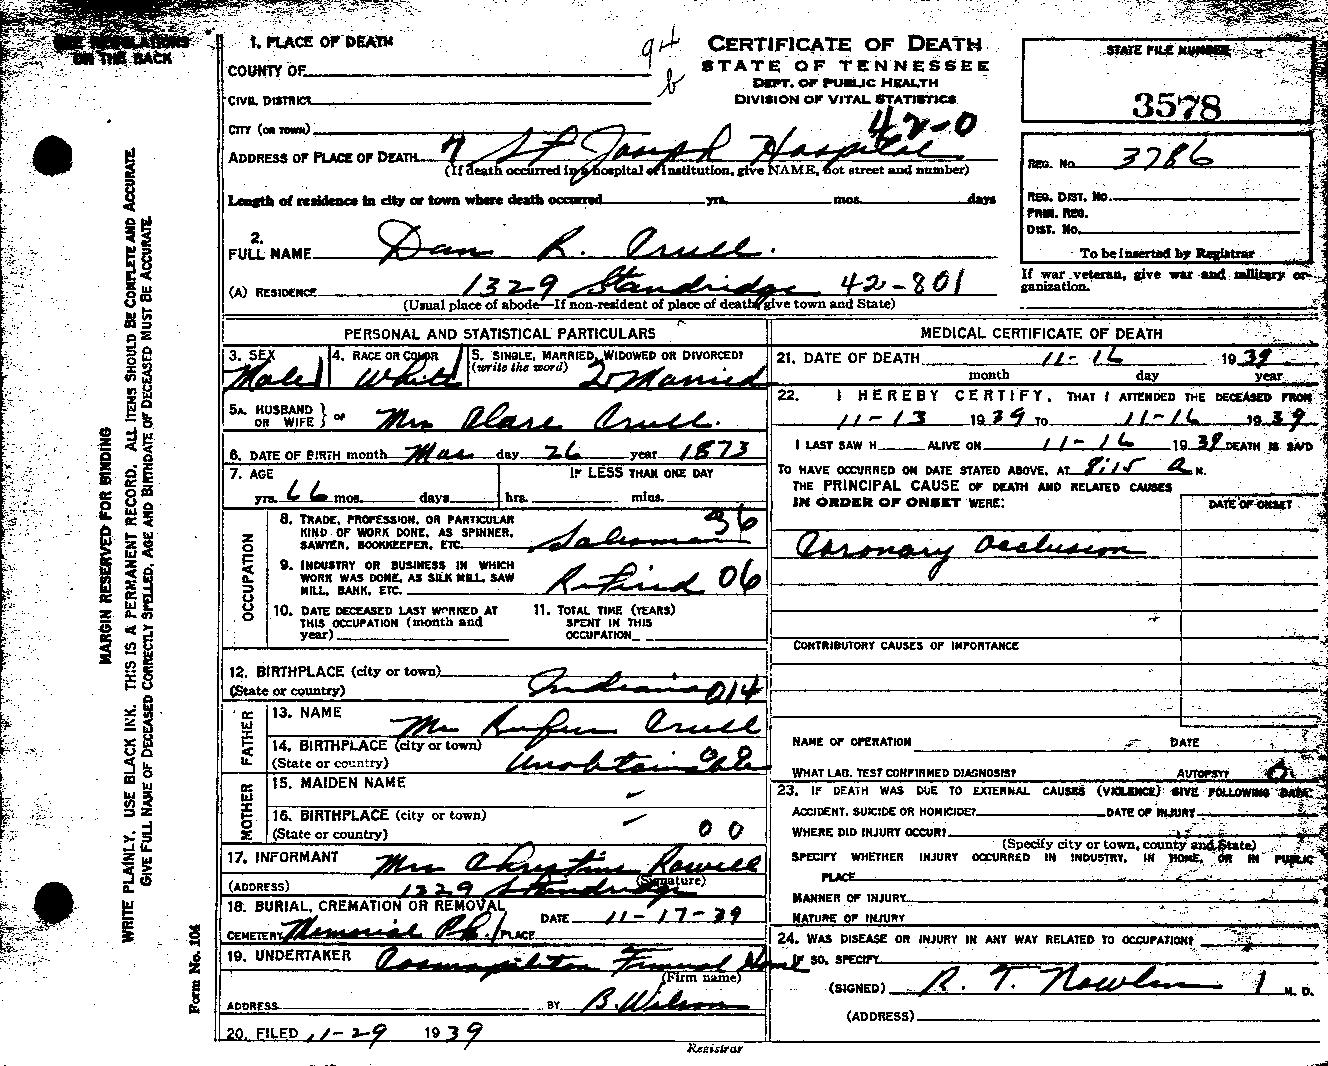 SEE REGULATIONS
ON THE BACK
MARGIN RESERVED FOR BINDING
WRITE PLAINLY. USE BLACK INK. THIS IS A PERMANENT RECORD. ALL ITEMS SHOULD BE COMPLETE AND ACCURATE.
GIVE FULL NAME OF DECEASED CORRECTLY SPELLED, AGE AND BIRTHDATE OF DECEASED MUST BE ACCURATE.
Form No. 104
CERTIFICATE OF DEATH
STATE OF TENNESSEE
DEPT. OF PUBLIC HEALTH
DIVISION OF VITAL STATISTICS
94
b
42-0
STATE FILE NUMBER
3578
REG. No. 3786
REG. DIST. No.
PRIM. REG.
DIST. No.
To be inserted by Registrar
If war veteran, give war and military or-
ganization.
1. PLACE OF DEATH
COUNTY OF
CIVIL DISTRICT
CITY (OR TOWN)
ADDRESS OF PLACE OF DEATH 7 St Joseph Hospital
(If death occurred in a hospital or institution, give NAME, not street and number)
Length of residence in city or town where death occurred yrs. mos. days
2.
FULL NAME Dan R. Crull.
(A) RESIDENCE 1329 Standridge 42-801
(Usual place of abode—If non-resident of place of death, give town and State)
PERSONAL AND STATISTICAL PARTICULARS
3. SEX Male
4. RACE OR COLOR White
5. SINGLE, MARRIED, WIDOWED OR DIVORCED?
(write the word) 2 Married
5A. HUSBAND OR WIFE } OF Mrs Clare Crull.
6. DATE OF BIRTH month Mar day 26 year 1873
7. AGE IF LESS THAN ONE DAY
yrs. 66 mos. days hrs. mins.
OCCUPATION
8. TRADE, PROFESSION, OR PARTICULAR
KIND OF WORK DONE, AS SPINNER,
SAWYER, BOOKKEEPER, ETC. Salesman 36
9. INDUSTRY OR BUSINESS IN WHICH
WORK WAS DONE, AS SILK MILL, SAW
MILL, BANK, ETC. Retired 06
10. DATE DECEASED LAST WORKED AT
THIS OCCUPATION (month and
year)
11. TOTAL TIME (YEARS)
SPENT IN THIS
OCCUPATION
12. BIRTHPLACE (city or town)
(State or country) Indiana 014
FATHER
13. NAME Mr Rufus Crull
14. BIRTHPLACE (city or town)
(State or country) Unobtainable
MOTHER
15. MAIDEN NAME -
16. BIRTHPLACE (city or town) -
(State or country) 00
17. INFORMANT Mrs Christine Rowell
(Signature)
(ADDRESS) 1329 Standridge
18. BURIAL, CREMATION OR REMOVAL DATE 11-17-39
CEMETERY Memorial Pk. PLACE
19. UNDERTAKER Cosmopolitan Funeral Home
(Firm name)
ADDRESS BY B. Wilson
20. FILED 11-29 1939
Registrar
MEDICAL CERTIFICATE OF DEATH
21. DATE OF DEATH 11-16 1939
month day year
22. I HEREBY CERTIFY, THAT I ATTENDED THE DECEASED FROM
11-13 1939 TO 11-16 1939
I LAST SAW H ALIVE ON 11-16 1939 DEATH IS SAID
TO HAVE OCCURRED ON DATE STATED ABOVE, AT 8:15 A M.
THE PRINCIPAL CAUSE OF DEATH AND RELATED CAUSES
IN ORDER OF ONSET WERE:
DATE OF ONSET
Coronary Occlusion
CONTRIBUTORY CAUSES OF IMPORTANCE
NAME OF OPERATION DATE
WHAT LAB. TEST CONFIRMED DIAGNOSIS? AUTOPSY? 0
23. IF DEATH WAS DUE TO EXTERNAL CAUSES (VIOLENCE) GIVE FOLLOWING DATA:
ACCIDENT, SUICIDE OR HOMICIDE? DATE OF INJURY
WHERE DID INJURY OCCUR?
(Specify city or town, county and State)
SPECIFY WHETHER INJURY OCCURRED IN INDUSTRY, IN HOME, OR IN PUBLIC
PLACE
MANNER OF INJURY
NATURE OF INJURY
24. WAS DISEASE OR INJURY IN ANY WAY RELATED TO OCCUPATION?
IF SO, SPECIFY
(SIGNED) R. T. Nowlin 1 M. D.
(ADDRESS)